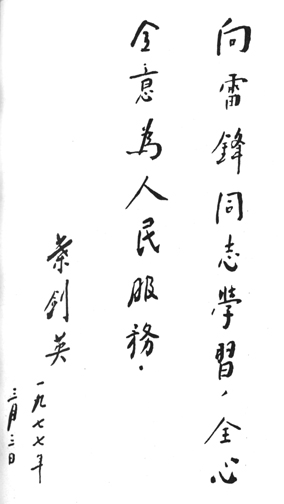 向雷鋒同志學習，全心
全意為人民服務.
葉劍英
一九七七年
三月三日